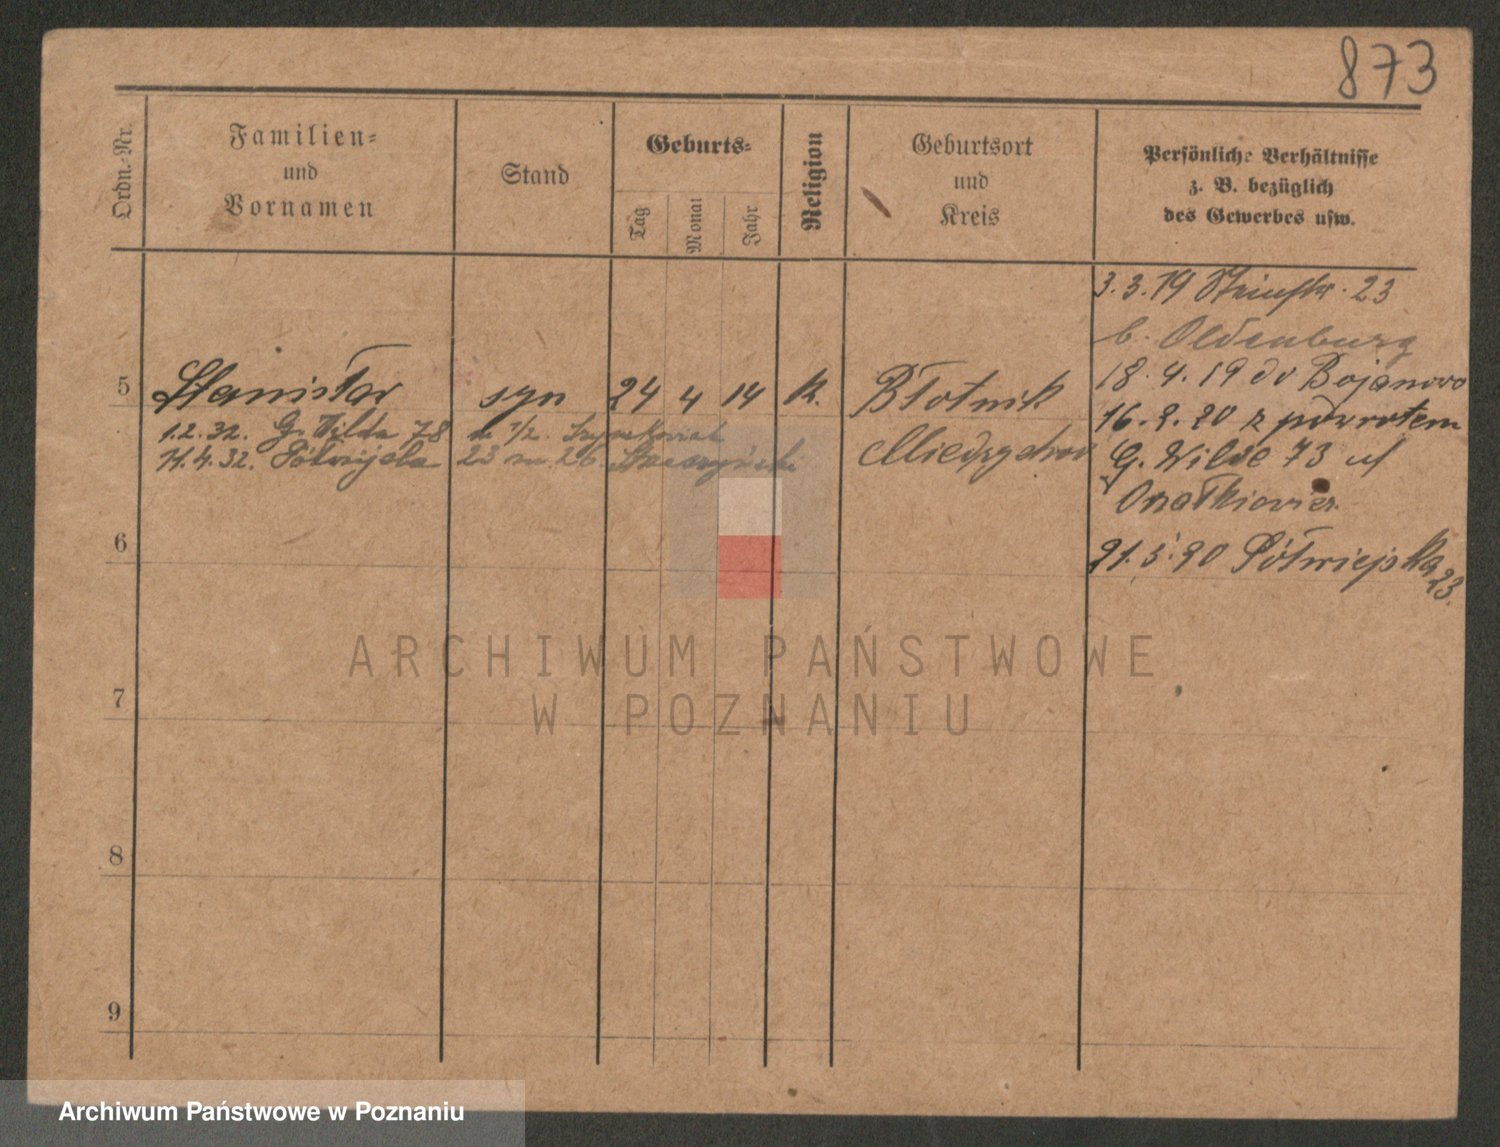 873
Ordn.-Nr.
Familien-
und
Vornamen
Stand
Geburts-
Tag
Monat
Jahr
Religion
Geburtsort
und
Kreis
Persönliche Verhältnisse
z. B. bezüglich
des Gewerbes usw.
3.3.19 Steinstr. 23
b. Oldenburg
5 Stanisław syn 24 4 14 K. Błotnik
18.4.19 do Bojanowo
1.2.32. G. Wilda 78
16.2.20 z powrotem
11.4.32. Półwiejska 23 m. 26
Międzychód
G. Wilde 73 u/
21.5.20 Półwiejska 23.
6
7
8
9
ARCHIWUM PAŃSTWOWE
W POZNANIU
Archiwum Państwowe w Poznaniu